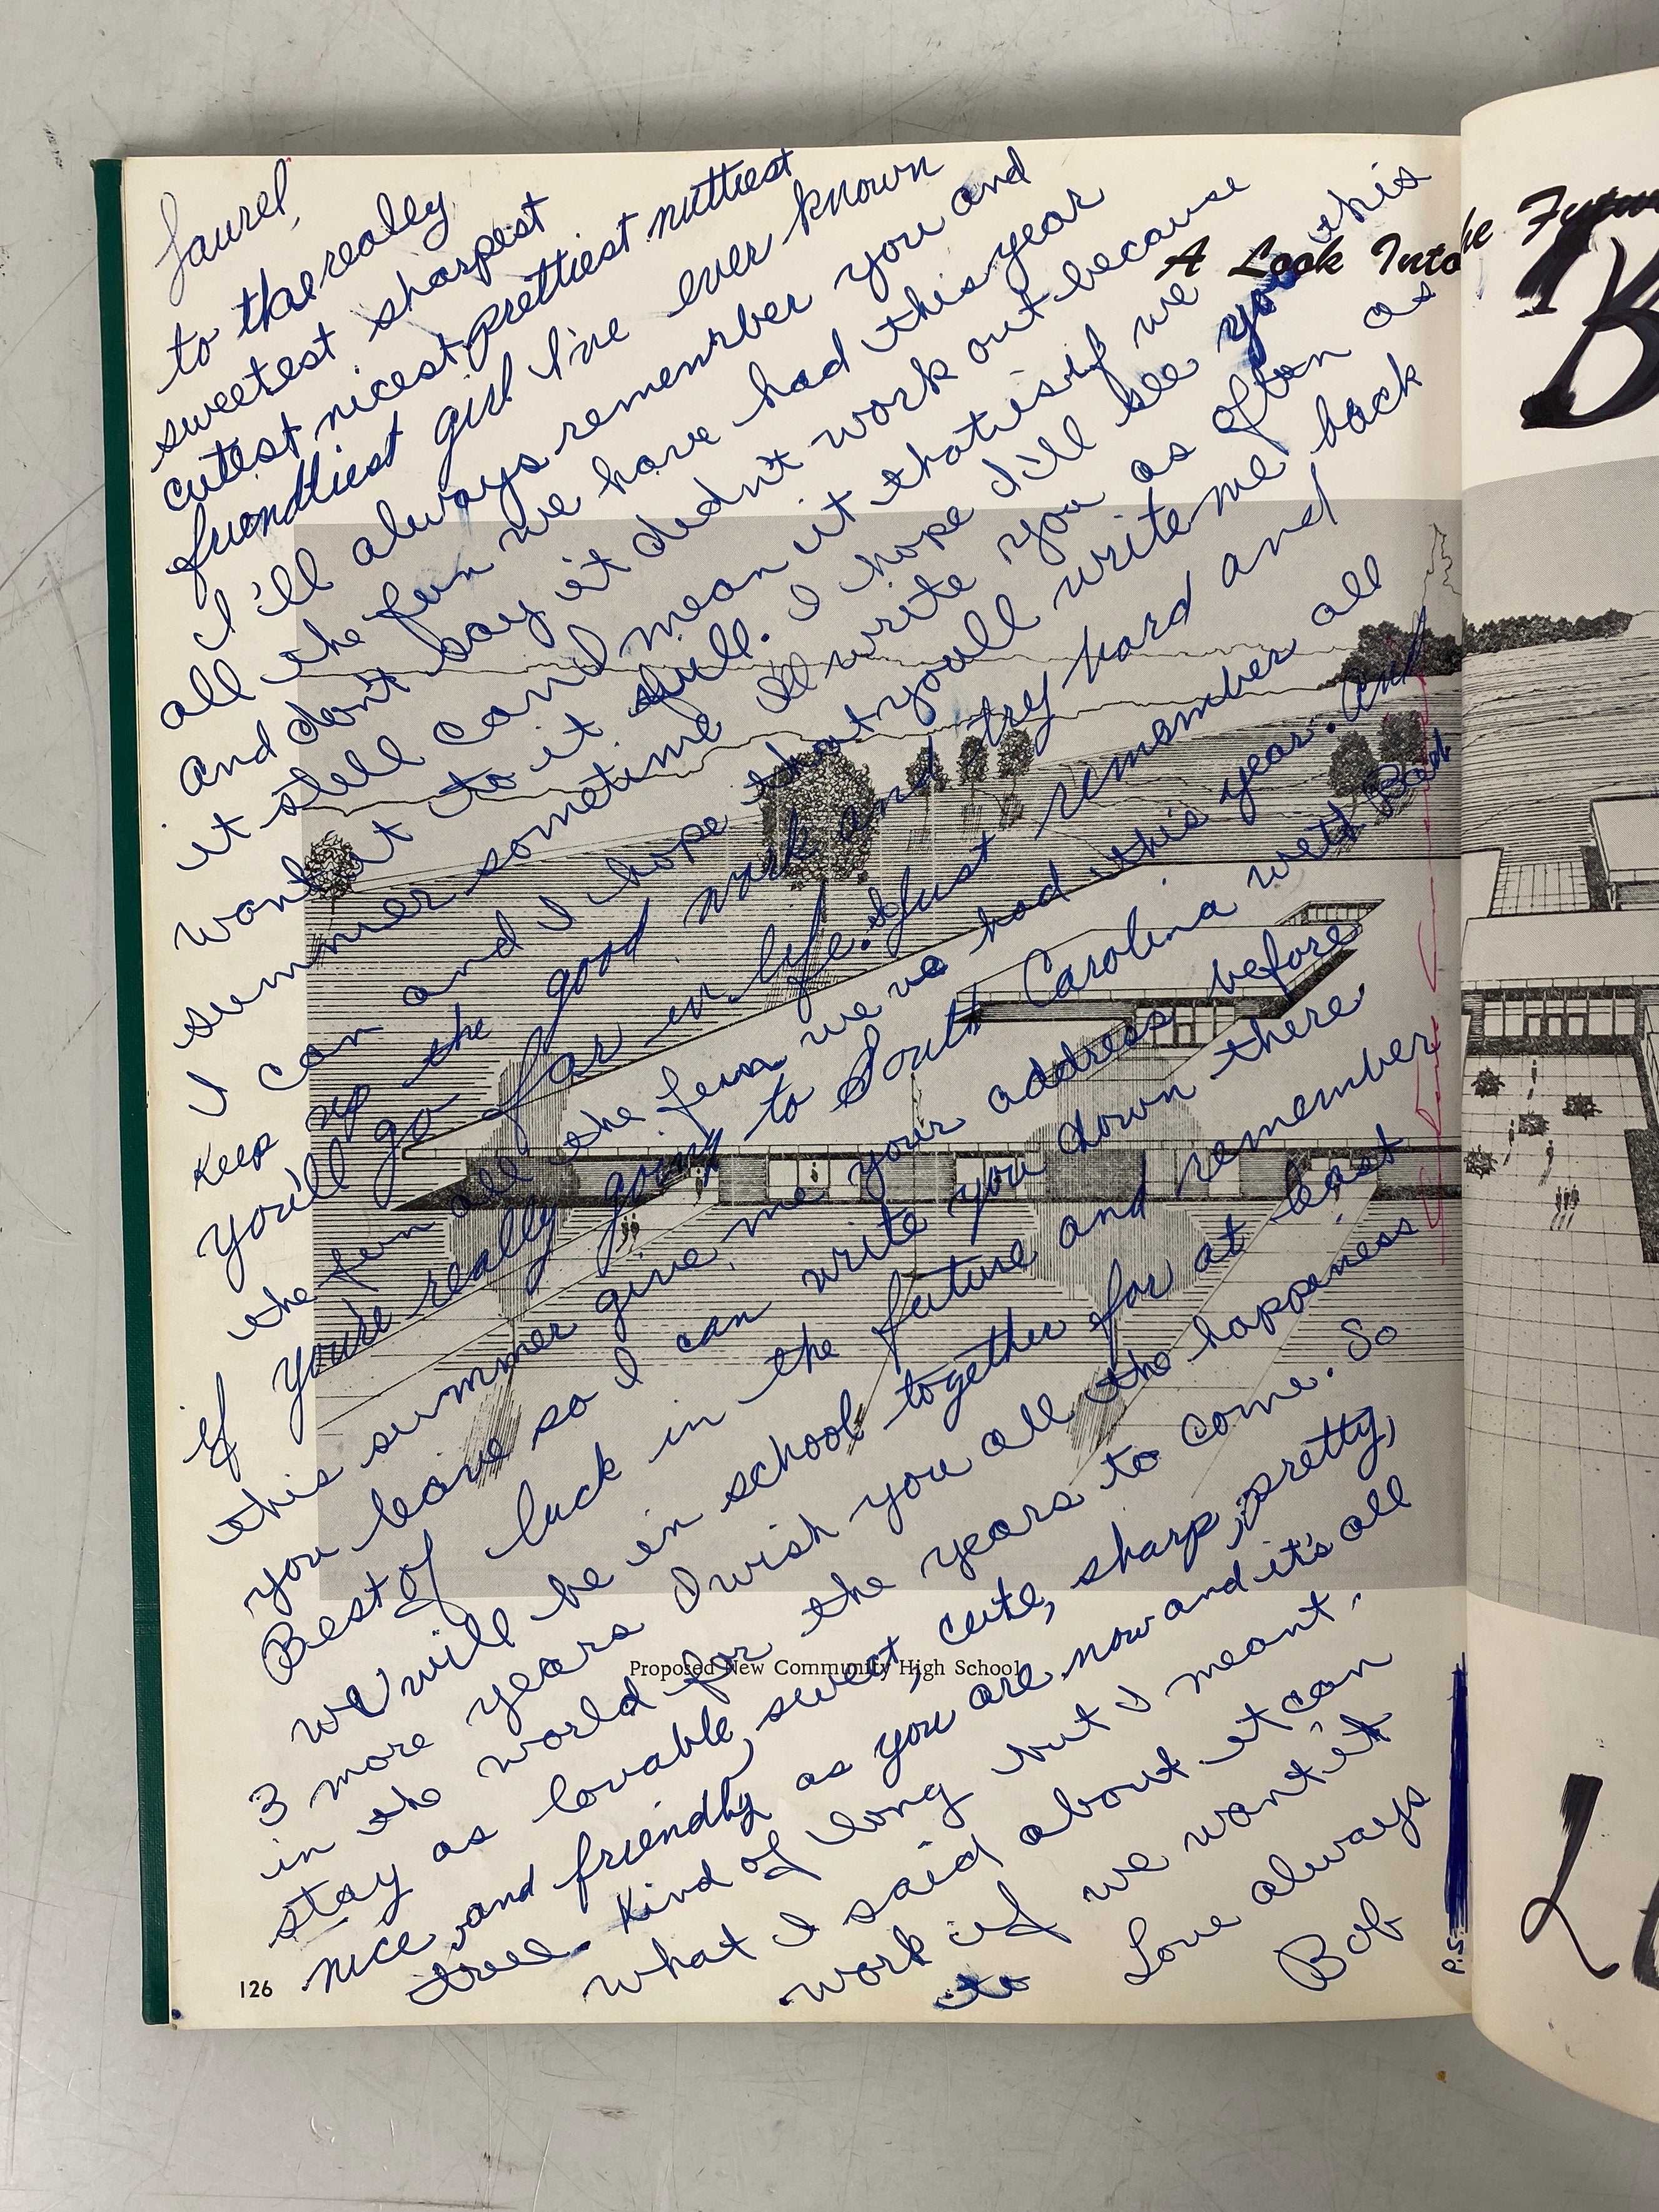 Laurel,
to the really
sweetest sharpest
cutest nicest prettiest nuttiest
friendliest girl I've ever known
I'll always remember you and
all the fun we have had this year
and don't say it didn't work out because
it still can I mean it that is if we
want it to it still. I hope I'll see you this
summer sometime Ill write you as often as
I can and I hope that youll write me back
keep up the good work and try hard and
you'll go far in life. Just remember all
the fun all the fun we've had this year. And
if youre really going to South Carolina with Bad
this summer give me your address before
you leave so I can write you down there.
Best of luck in the future and remember
we will be in school together for at least
3 more years I wish you all the happiness
in the world for the years to come. So
stay as lovable, sweet, cute, sharp, pretty,
nice and friendly as you are now and it's all
Kind of long but I meant
what I said about it can
work if we want it
to
Love always
Bob
P.S.
A Look Into the Future
Proposed New Community High School
126